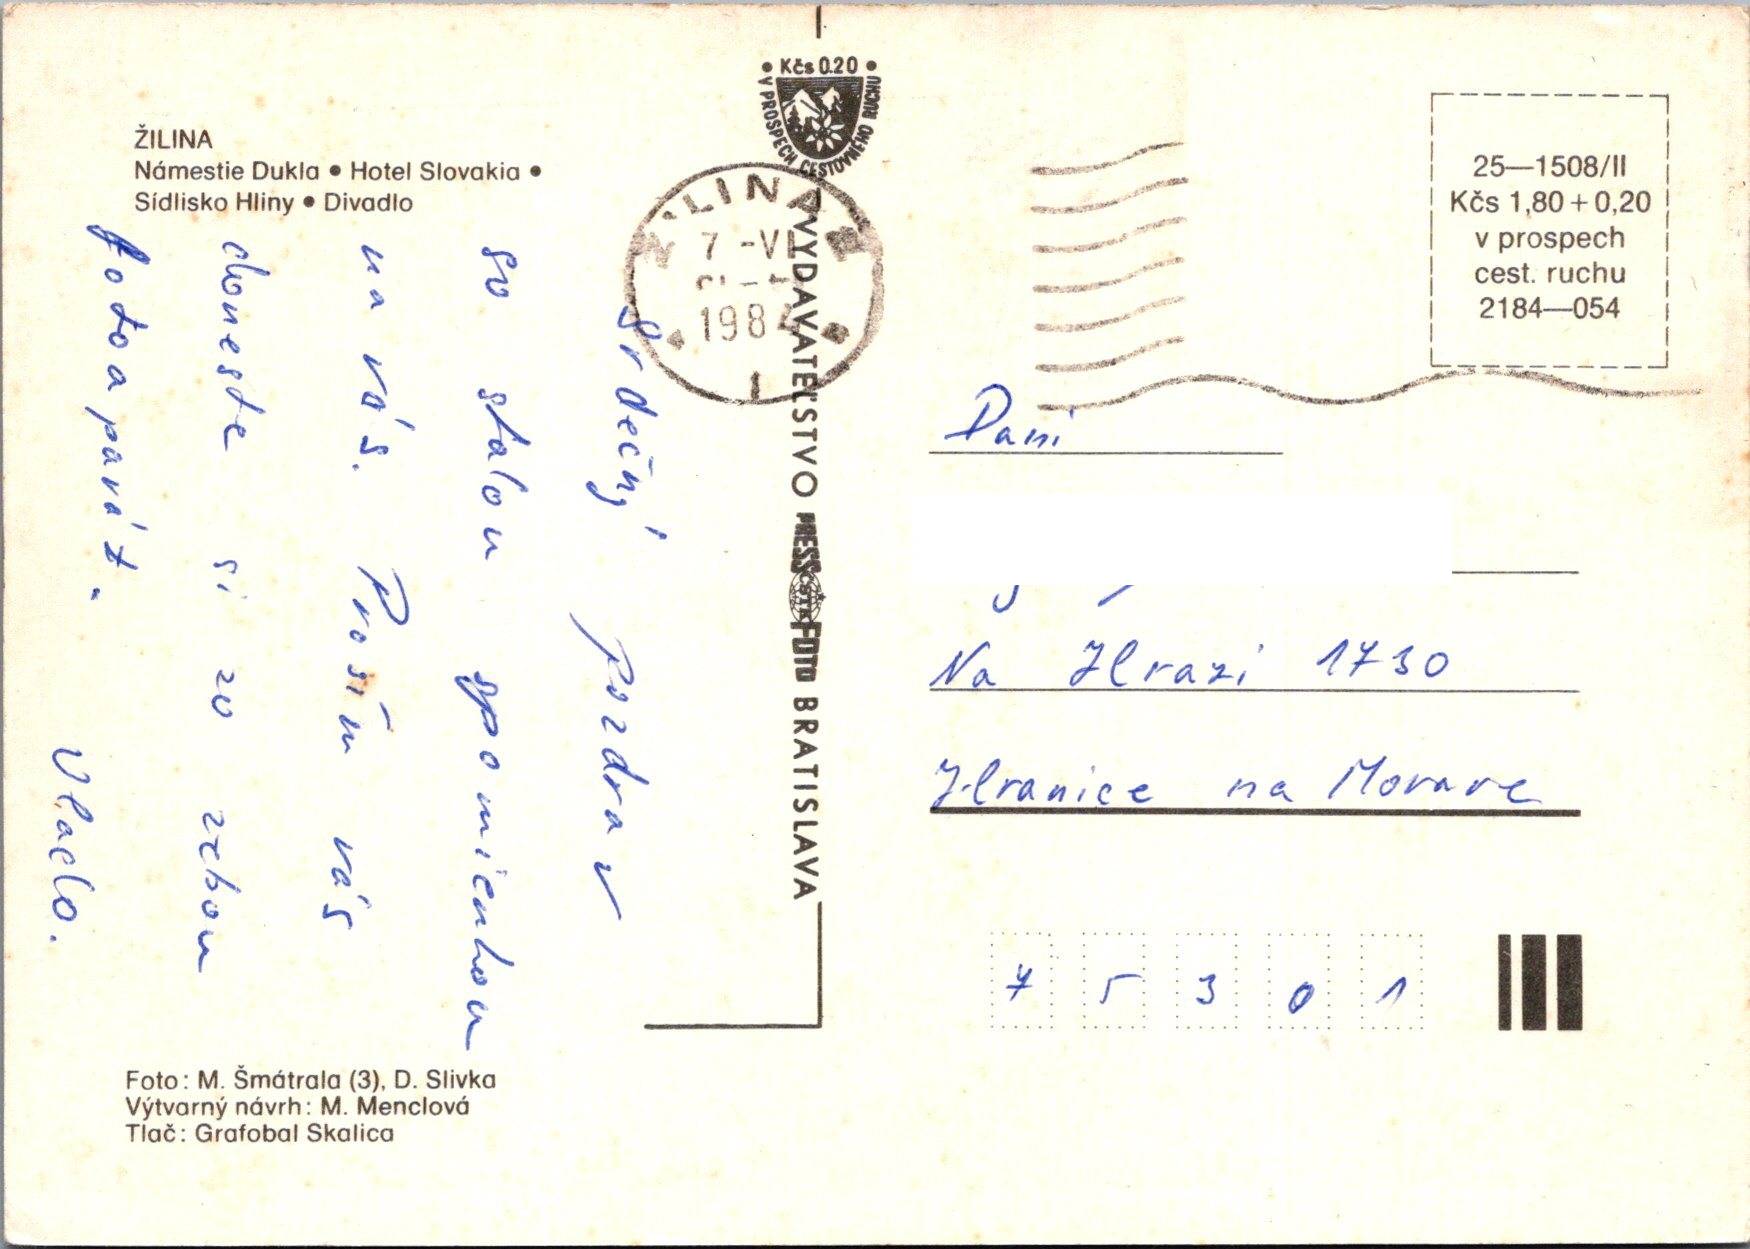 ŽILINA
Námestie Dukla • Hotel Slovakia •
Sídlisko Hliny • Divadlo
Srdečný pozdrav
so stalou spomienkou
na vás. Prosím vás
doneste si zo zebou
fotoaparát.
Vlado.
Foto: M. Šmátrala (3), D. Slivka
Výtvarný návrh: M. Menclová
Tlač: Grafobal Skalica
• Kčs 0.20 •
V PROSPECH CESTOVNÉHO RUCHU
ŽILINA
7 -VI
198
1
VYDAVATEĽSTVO PRESSFOTO BRATISLAVA
ČSTK
25—1508/II
Kčs 1,80 + 0,20
v prospech
cest. ruchu
2184—054
Pani
Na Hrazi 1730
Hranice na Morave
7 5 3 0 1